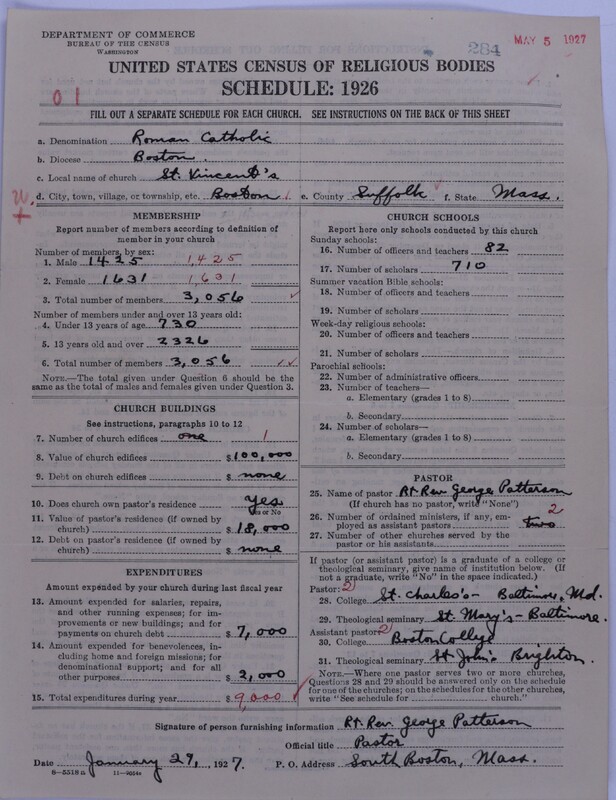 DEPARTMENT OF COMMERCE
BUREAU OF THE CENSUS
WASHINGTON
284
MAY 5 1927
UNITED STATES CENSUS OF RELIGIOUS BODIES
SCHEDULE: 1926
01
FILL OUT A SEPARATE SCHEDULE FOR EACH CHURCH. SEE INSTRUCTIONS ON THE BACK OF THIS SHEET
a. Denomination Roman Catholic
b. Diocese Boston.
c. Local name of church St. Vincent's
d. City, town, village, or township, etc. Boston e. County Suffolk f. State Mass.
MEMBERSHIP
Report number of members according to definition of member in your church
Number of members, by sex:
1. Male 1425 1425
2. Female 1631 1631
3. Total number of members 3,056
Number of members under and over 13 years old:
4. Under 13 years of age 730
5. 13 years old and over 2326
6. Total number of members 3,056
NOTE.—The total given under Question 6 should be the same as the total of males and females given under Question 3.
CHURCH BUILDINGS
See instructions, paragraphs 10 to 12
7. Number of church edifices one 1
8. Value of church edifices $100,000
9. Debt on church edifices $ none
10. Does church own pastor's residence Yes
Yes or No
11. Value of pastor's residence (if owned by church) $18,000
12. Debt on pastor's residence (if owned by church) $ none
EXPENDITURES
Amount expended by your church during last fiscal year
13. Amount expended for salaries, repairs, and other running expenses; for improvements or new buildings; and for payments on church debt $7,000
14. Amount expended for benevolences, including home and foreign missions; for denominational support; and for all other purposes $2,000
15. Total expenditures during year $9000
CHURCH SCHOOLS
Report here only schools conducted by this church
Sunday schools:
16. Number of officers and teachers 82
17. Number of scholars 710
Summer vacation Bible schools:
18. Number of officers and teachers
19. Number of scholars
Week-day religious schools:
20. Number of officers and teachers
21. Number of scholars
Parochial schools:
22. Number of administrative officers
23. Number of teachers—
a. Elementary (grades 1 to 8)
b. Secondary
24. Number of scholars—
a. Elementary (grades 1 to 8)
b. Secondary
PASTOR
25. Name of pastor Rt. Rev. George Patterson
(If church has no pastor, write "None")
26. Number of ordained ministers, if any, employed as assistant pastors two 2
27. Number of other churches served by the pastor or his assistants
If pastor (or assistant pastor) is a graduate of a college or theological seminary, give name of institution below. (If not a graduate, write "No" in the space indicated.)
Pastor: 2
28. College St. Charles's - Baltimore, Md.
29. Theological seminary St. Mary's - Baltimore.
Assistant pastor: 2
30. College Boston College
31. Theological seminary St. John's Brighton.
NOTE.—Where one pastor serves two or more churches, Questions 28 and 29 should be answered only on the schedule for one of the churches; on the schedules for the other churches, write "See schedule for church."
Signature of person furnishing information Rt. Rev. George Patterson
Official title Pastor
Date January 29, 1927. P. O. Address South Boston, Mass.
8—5518a 11—9054